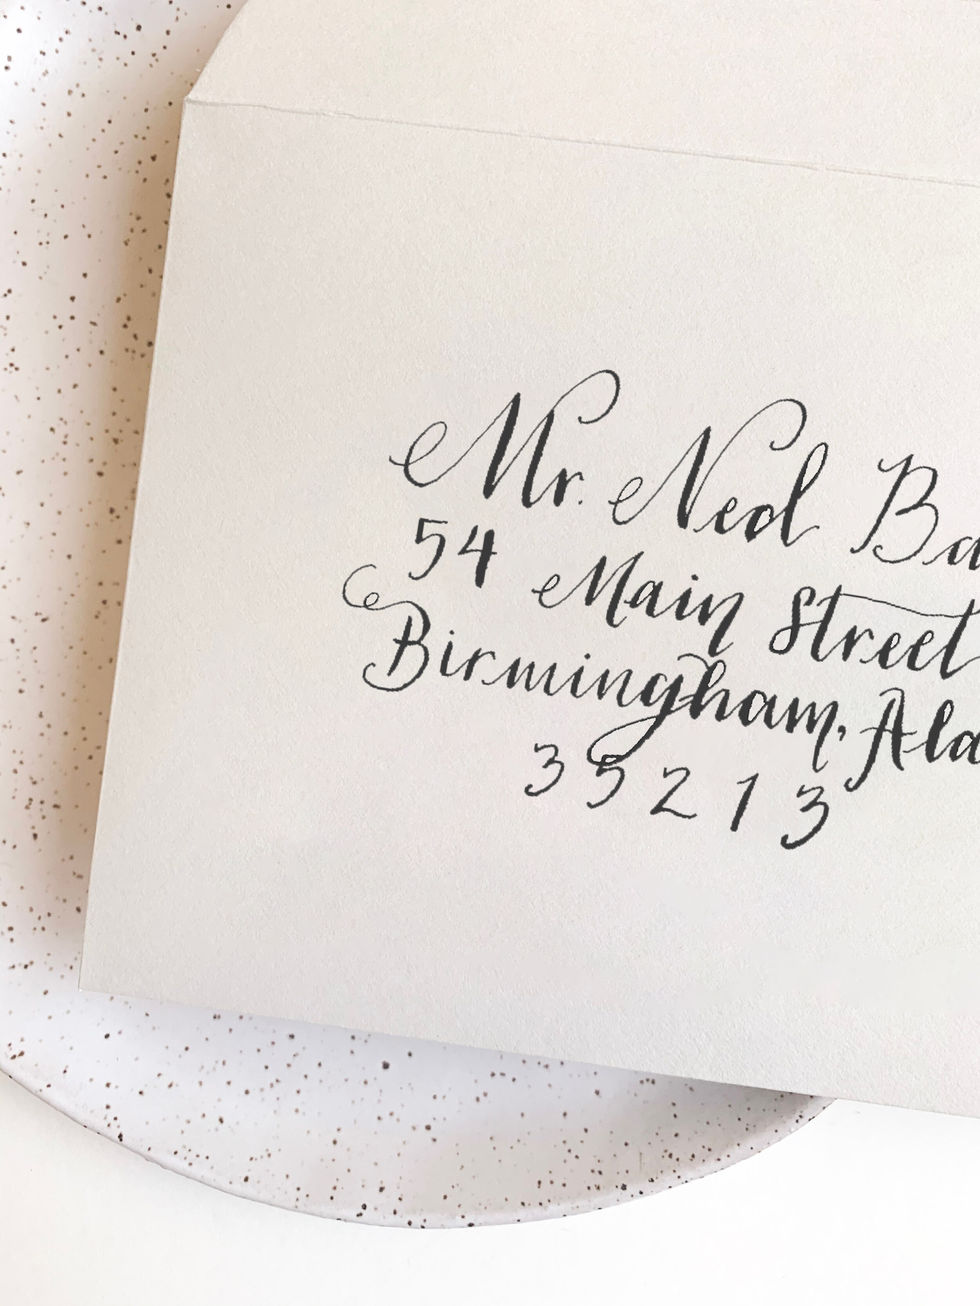 Mr. Ned Ba
54 Main Street
Birmingham, Ala
35213